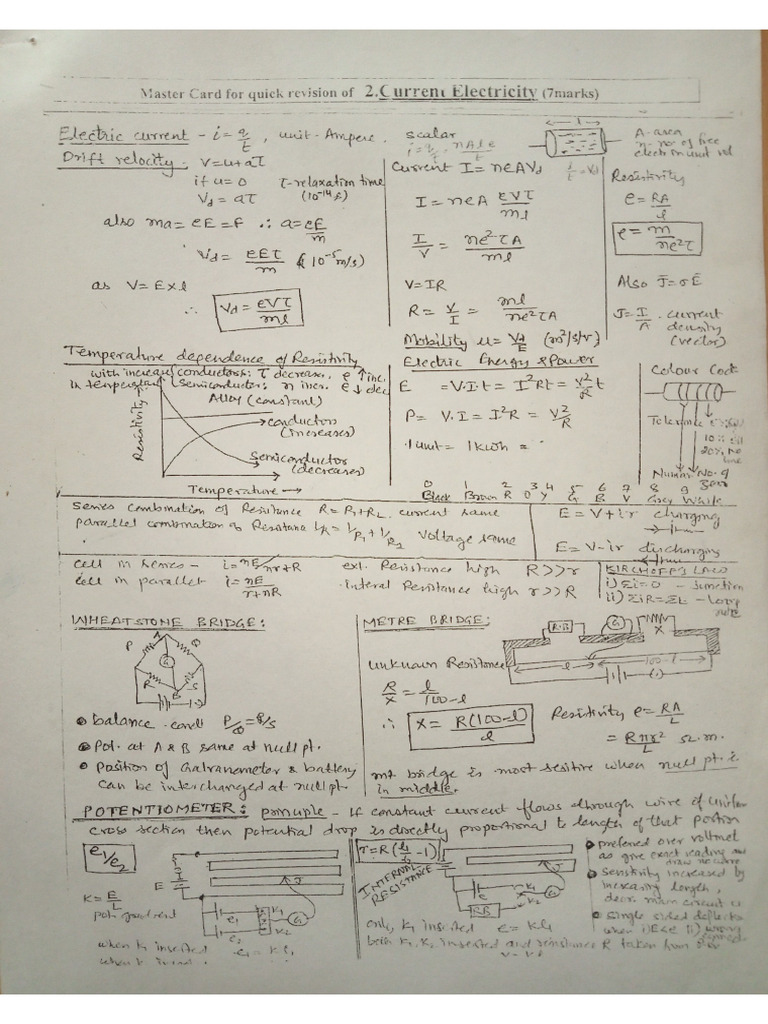 Master Card for quick revision of 2.Current Electricity (7marks)
Electric current - i = q/t , unit - Ampere. scalar
i = q/t = nAle/t
A - area
n - no of free
electron unit vol
Drift velocity - v = u + aτ
if u = 0 τ - relaxation time
Vd = aτ (10⁻¹⁴s)
also ma = eE = F ∴ a = eE/m
Vd = eEτ/m (10⁻⁵m/s)
as V = E x l
∴ Vd = eVτ/ml
Current I = neAVd
l/t = Vd
I = neA eVτ/ml
I/V = ne²τA/ml
V = IR
R = V/I = ml/ne²τA
Mobility μ = Vd/E (m²/s/v)
Resistivity
ρ = RA/l
ρ = m/ne²τ
Also J = σE
J = I/A . current
density
(vector)
Temperature dependence of Resistivity
with increase conductors: τ decrease. ρ ↑ inc.
in temperature semiconductor: n incr. ρ ↓ dec
Alloy (constant)
conductors
(increases)
Semiconductor
(decreases)
Resistivity →
Temperature →
Electric Energy & Power
E = V.I.t = I²Rt = V²/R t
P = V.I = I²R = V²/R
1 unit = 1 kWh =
Colour Code
Tolerance
10%
20% No
Number No. of
0 1 2 3 4 5 6 7 8 9
Black Brown R O Y G B V Grey White
Series combination of Resistance R = R1 + R2 current same
parallel combination of Resistance 1/R = 1/R1 + 1/R2 voltage same
E = V + ir charging
E = V - ir discharging
cell in series - i = nE/nr+R ext. Resistance high R >> r
cell in parallel i = nE/r+nR interal Resistance high r >> R
KIRCHOFF'S LAW
i) Σi = 0 - junction
ii) ΣiR = ΣE - loop
rule
WHEATSTONE BRIDGE:
P A Q
G
R B S
● balance condt P/Q = R/S
● Pot. at A & B same at null pt.
● Position of Galvanometer & battery
can be interchanged at null pt.
METRE BRIDGE:
R.B G X
l 100-l
Unknown Resistance
R/X = l/100-l
∴ X = R(100-l)/l
Resistivity ρ = RA/L
= Rπr²/L Ω.m.
mt bridge is most sesitive when null pt. i.
in middle.
POTENTIOMETER: principle - If constant current flows through wire of uniform
cross section then potential drop is directly proportional to length of that portion
e1/e2
E
J
K = E/L
potn gradient
e1 K1
e2 K2
G
when K1 inserted e1 = Kl1
r = R(l1/l2 - 1)
INTERNAL
RESISTANCE
J
e K1
RB K2
G
only K1 inserted e = Kl1
both K1, K2 inserted and resistance R taken from
● preferred over voltmet
as give exact reading
draw no curre
● sensitivity increased by
increasing length,
decr. main circuit i
● single sided deflects
when i) E<e ii) wrong